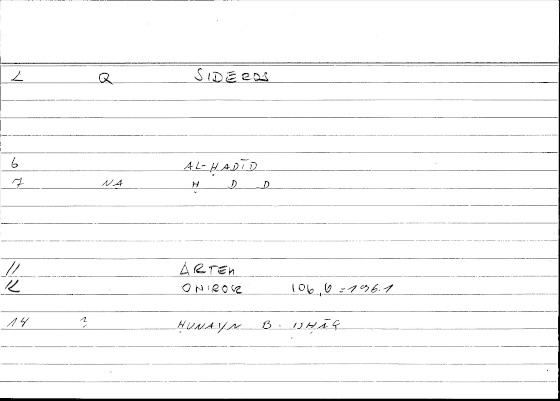 L Q SIDEROS
6 AL-ḤADĪD
7 NA Ḥ D D
11 ARTEM
12 ONIROCR 106,6=196.1
14 ? ḤUNAYN B. ISḤĀQ